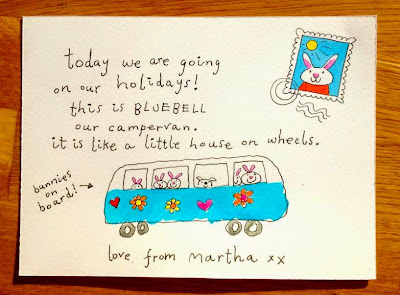 today we are going
on our holidays!
this is BLUEBELL
our campervan.
it is like a little house on wheels.
bunnies
on
board!
love from Martha xx